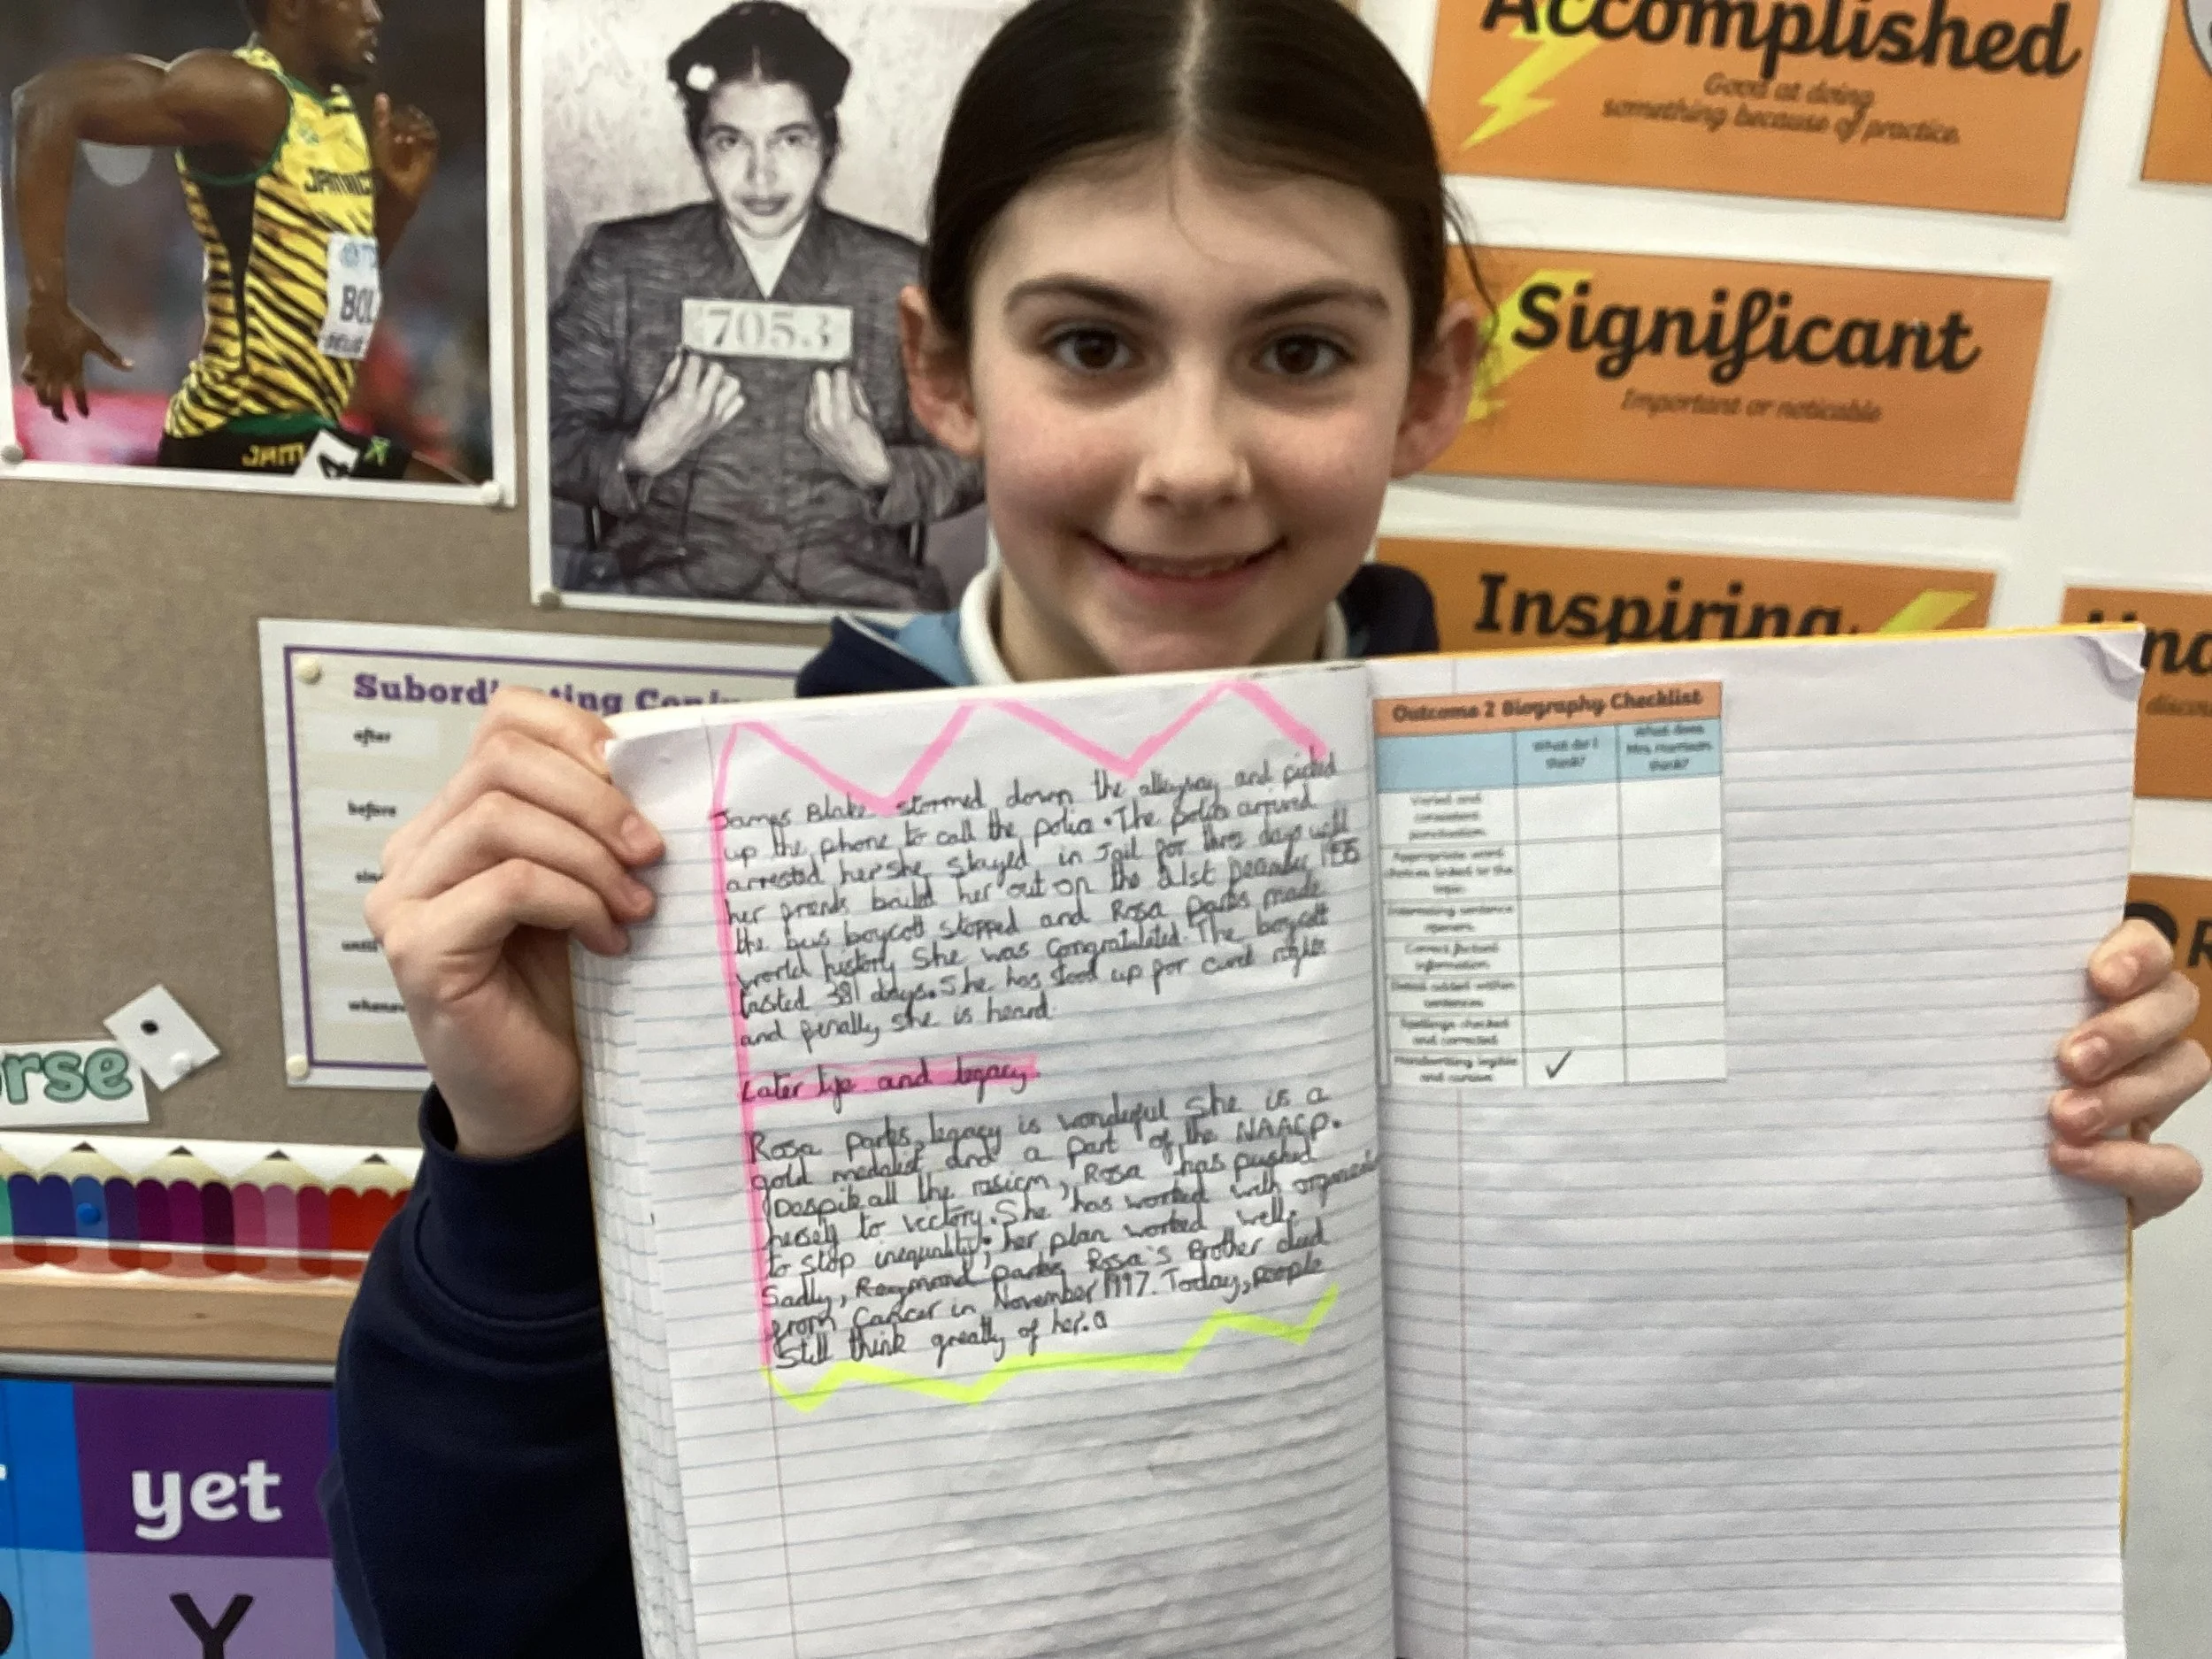 JAMAICA
BOL
JAM
7053
Accomplished
Good at doing
something because of practice.
Significant
Important or noticable
Inspiring
Subord ting Con
after
before
until
rse
yet
Y
James Blake stormed down the alleyway and picked
up the phone to call the police. The police arrived
arrested her she stayed in Jail for three days until
her friends baild her out on the 21st 
the bus boycott stopped and Rosa Parks made
world history She was congratulated. The boycott
lasted 381 days. She has stood up for right
and finally she is heard
Later life and legacy.
Rosa Parks, legacy is wonderful she is a
gold medalist and a part of the NAACP.
Despite all the rasicm, Rosa has pushed
herself to victory. She has worked with
to stop inequality; her plan worked well.
Sadly, Raymond parks Rosa's Brother died
from Cancer in November 1997. Today, people
Still think greatly of her.
Outcome 2 Biography Checklist
What do I
think?
What does
Mrs Harrison
think?
Varied and
consistent
punctuation.
Appropriate word
choices linked to the
topic.
Interesting sentence
openers.
Correct factual
information.
Detail added within
sentences
Spellings checked
and corrected
Handwriting legible
and cursive
✓